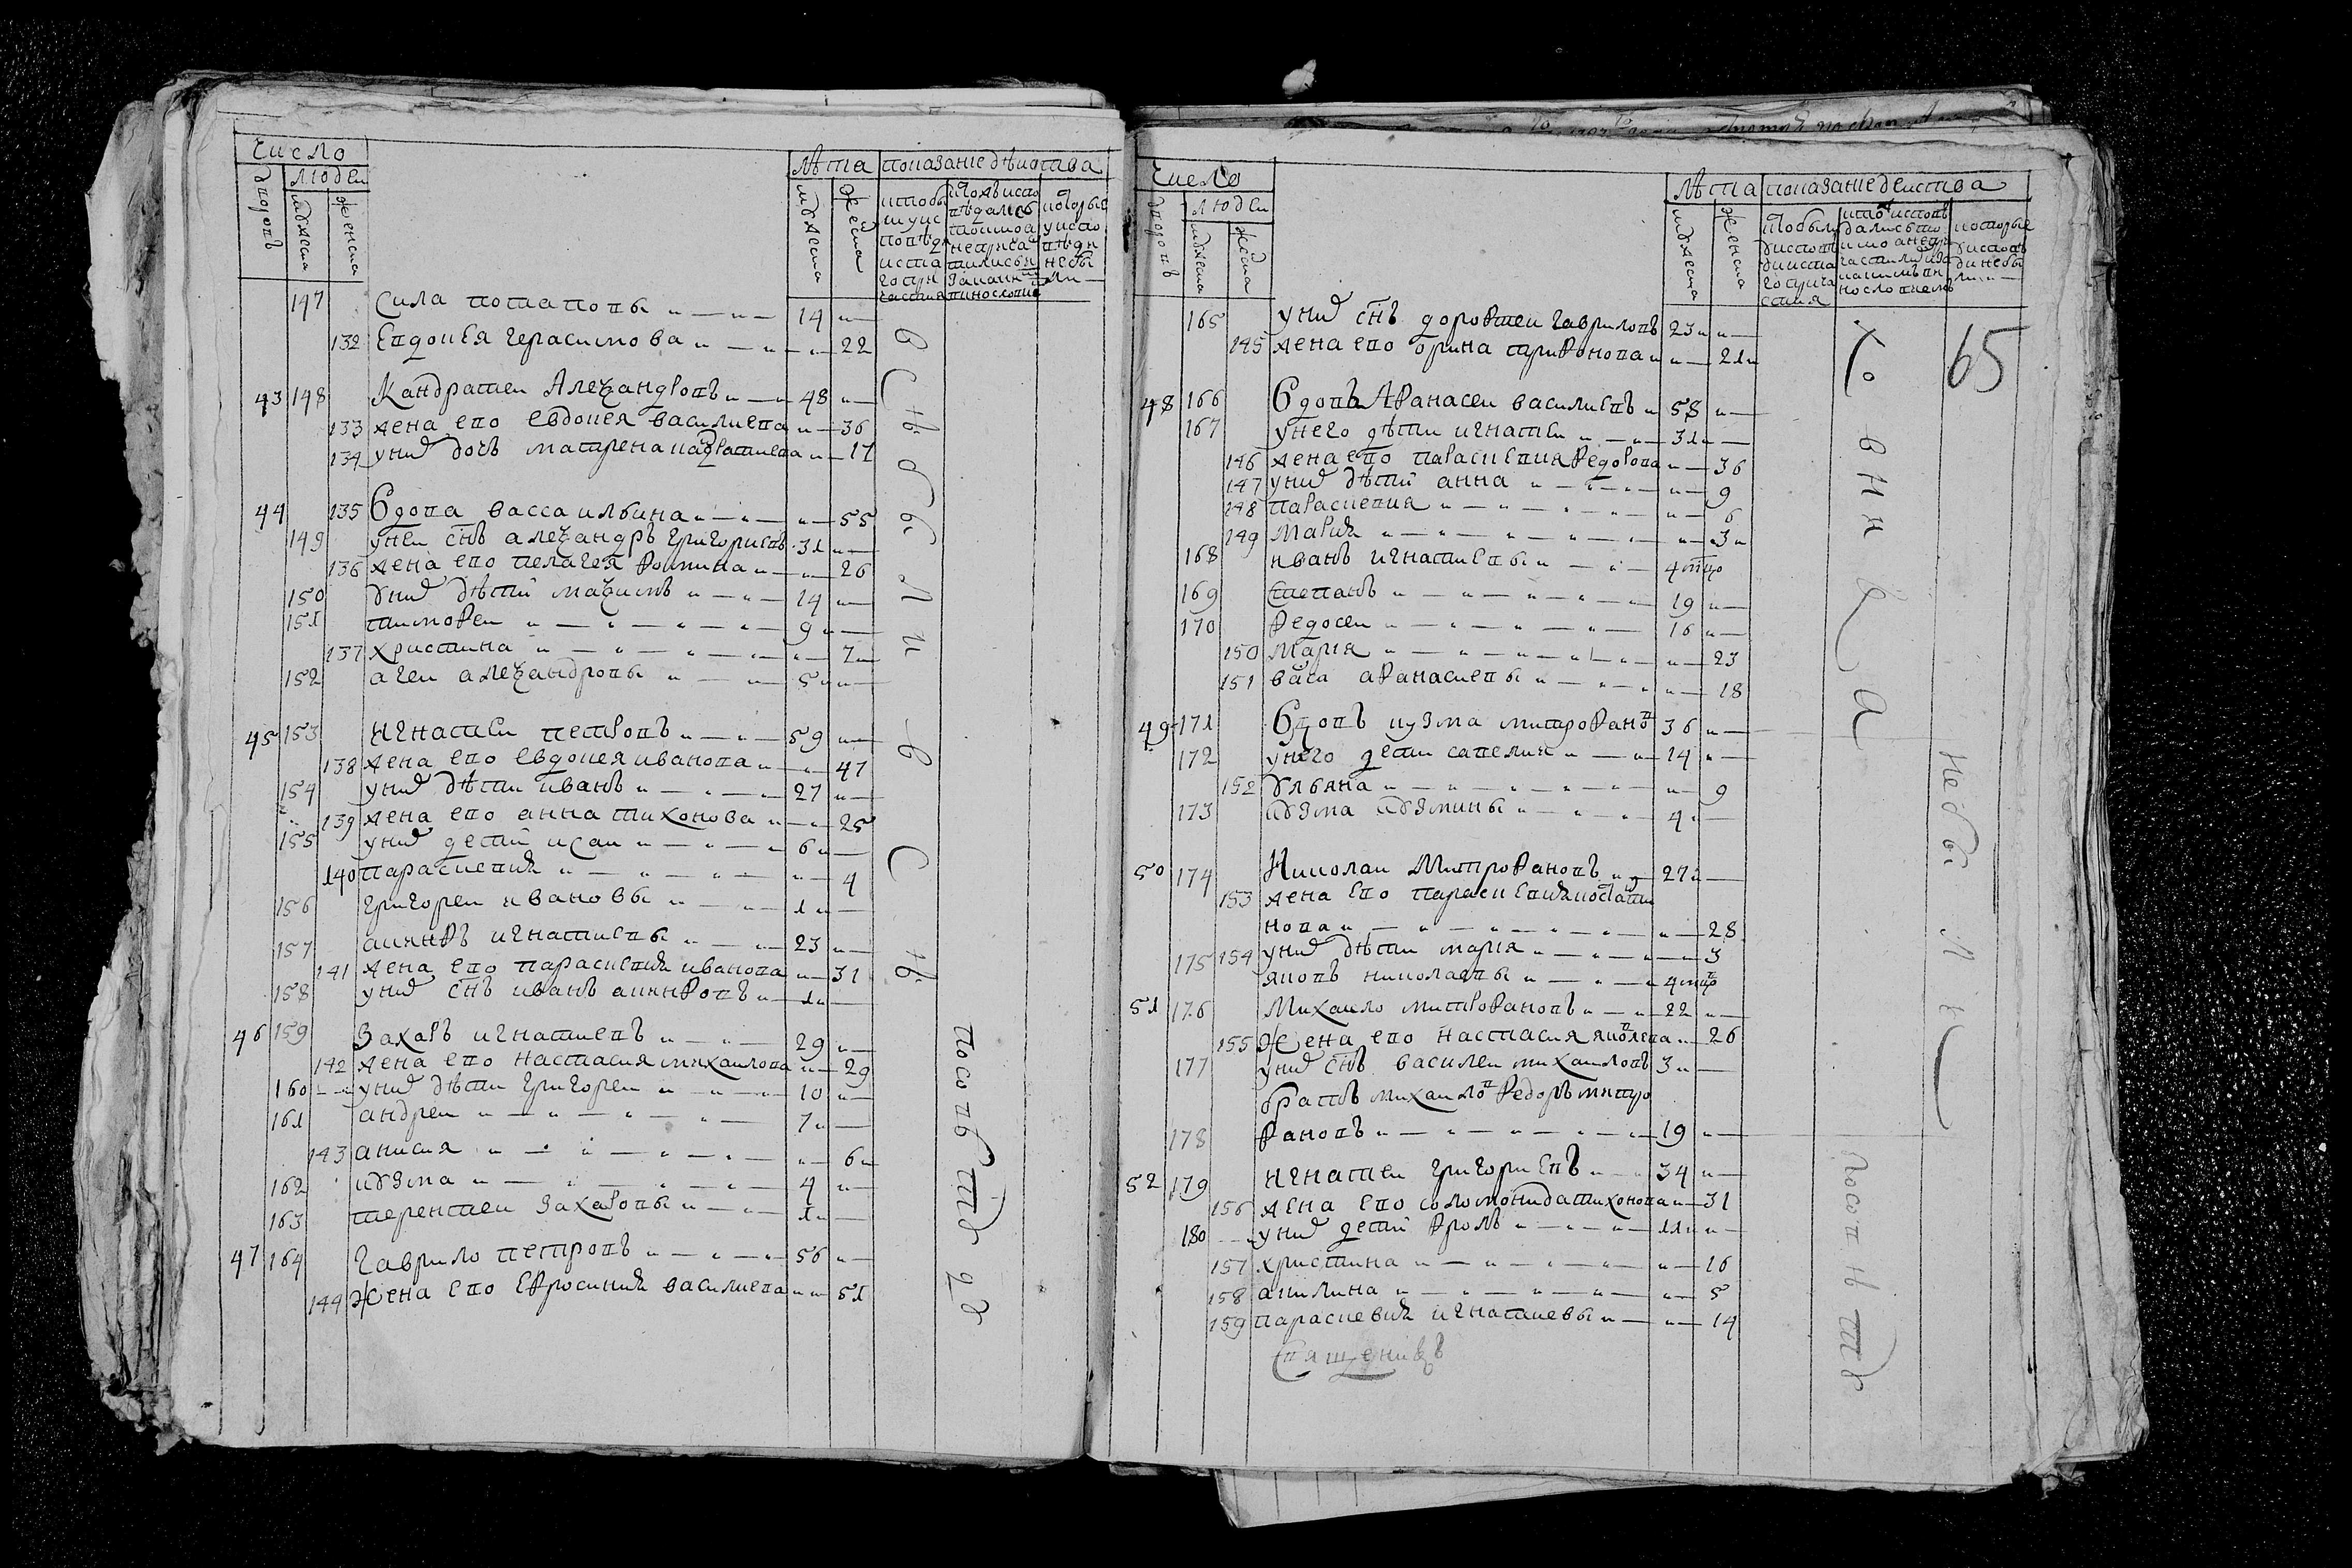 Число
людеи
дворовъ
мужеска
женска
лѣта
показание дѣиства
мужеска
женска
147 Сила потаповы 14
132 Евдокея Герасимова 22
43 148 Кандратеи Александровъ 48
133 жена ево евдокея василиева 36
134 у них дочь матрена кандратиева 17
44 135 вдова васса ильина 55
149 у неи снъ александръ григориевъ 31
136 жена ево пелагея фомина 26
150 у них дѣти максимъ 14
151 тимофеи 9
137 христина 7
152 агеи александровы 5
45 153 игнатеи петровъ 59
138 жена ево евдокея иванова 47
154 у них дѣти иванъ 27
139 жена ево анна тихонова 25
155 у них дети исаи 6
140 параскевия 4
156 григореи ивановы 1
157 акинфъ игнатиевы 23
141 жена ево параскевия иванова 31
158 у них снъ иванъ акинфовъ 1
46 159 Захаръ игнатиевъ 29
142 жена ево настасия михаилова 29
160 у них дѣти григореи 10
161 андреи 7
143 анисия 6
162 кузма 4
163 терентеи захаровы 1
47 164 гаврило петровъ 56
144 жена ево ефросиния василиева 51
Число
людеи
дворовъ
мужеска
женска
лѣта
показание деиства
мужеска
женска
65
165 у них снъ дорофеи гавриловъ 23
145 жена ево орина трифонова 21
48 166 вдовъ Афанасеи василиевъ 58
167 у него дѣти игнатеи 31
146 жена ево параскевия федорова 36
147 у них дѣти анна 9
148 параскевия 6
149 мария 3
168 иванъ игнатиевы
169 степанъ 19
170 федосеи 16
150 мария 23
151 васа афанасиевы 18
49 171 вдовъ кузма митрофанов 36
172 у него дети савелии 14
152 ульяна 9
173 кузма кузмины 4
50 174 Николаи Митрофановъ 27
153 жена ево параскевия костанти
нова 28
154 у них дѣти мария 3
175 яковъ николаевы
51 176 Михаило митрофановъ 22
155 жена ево настасия яковлева 26
177 у них снъ василеи михаиловъ 3
братъ михаилов федоръ митро
178 фановъ 19
52 179 игнатеи григориевъ 34
156 жена ево соломонида тихонова 31
180 у них дети фролъ 11
157 христина 16
158 акилина 5
159 параскевия игнатиевы 14
Священникъ